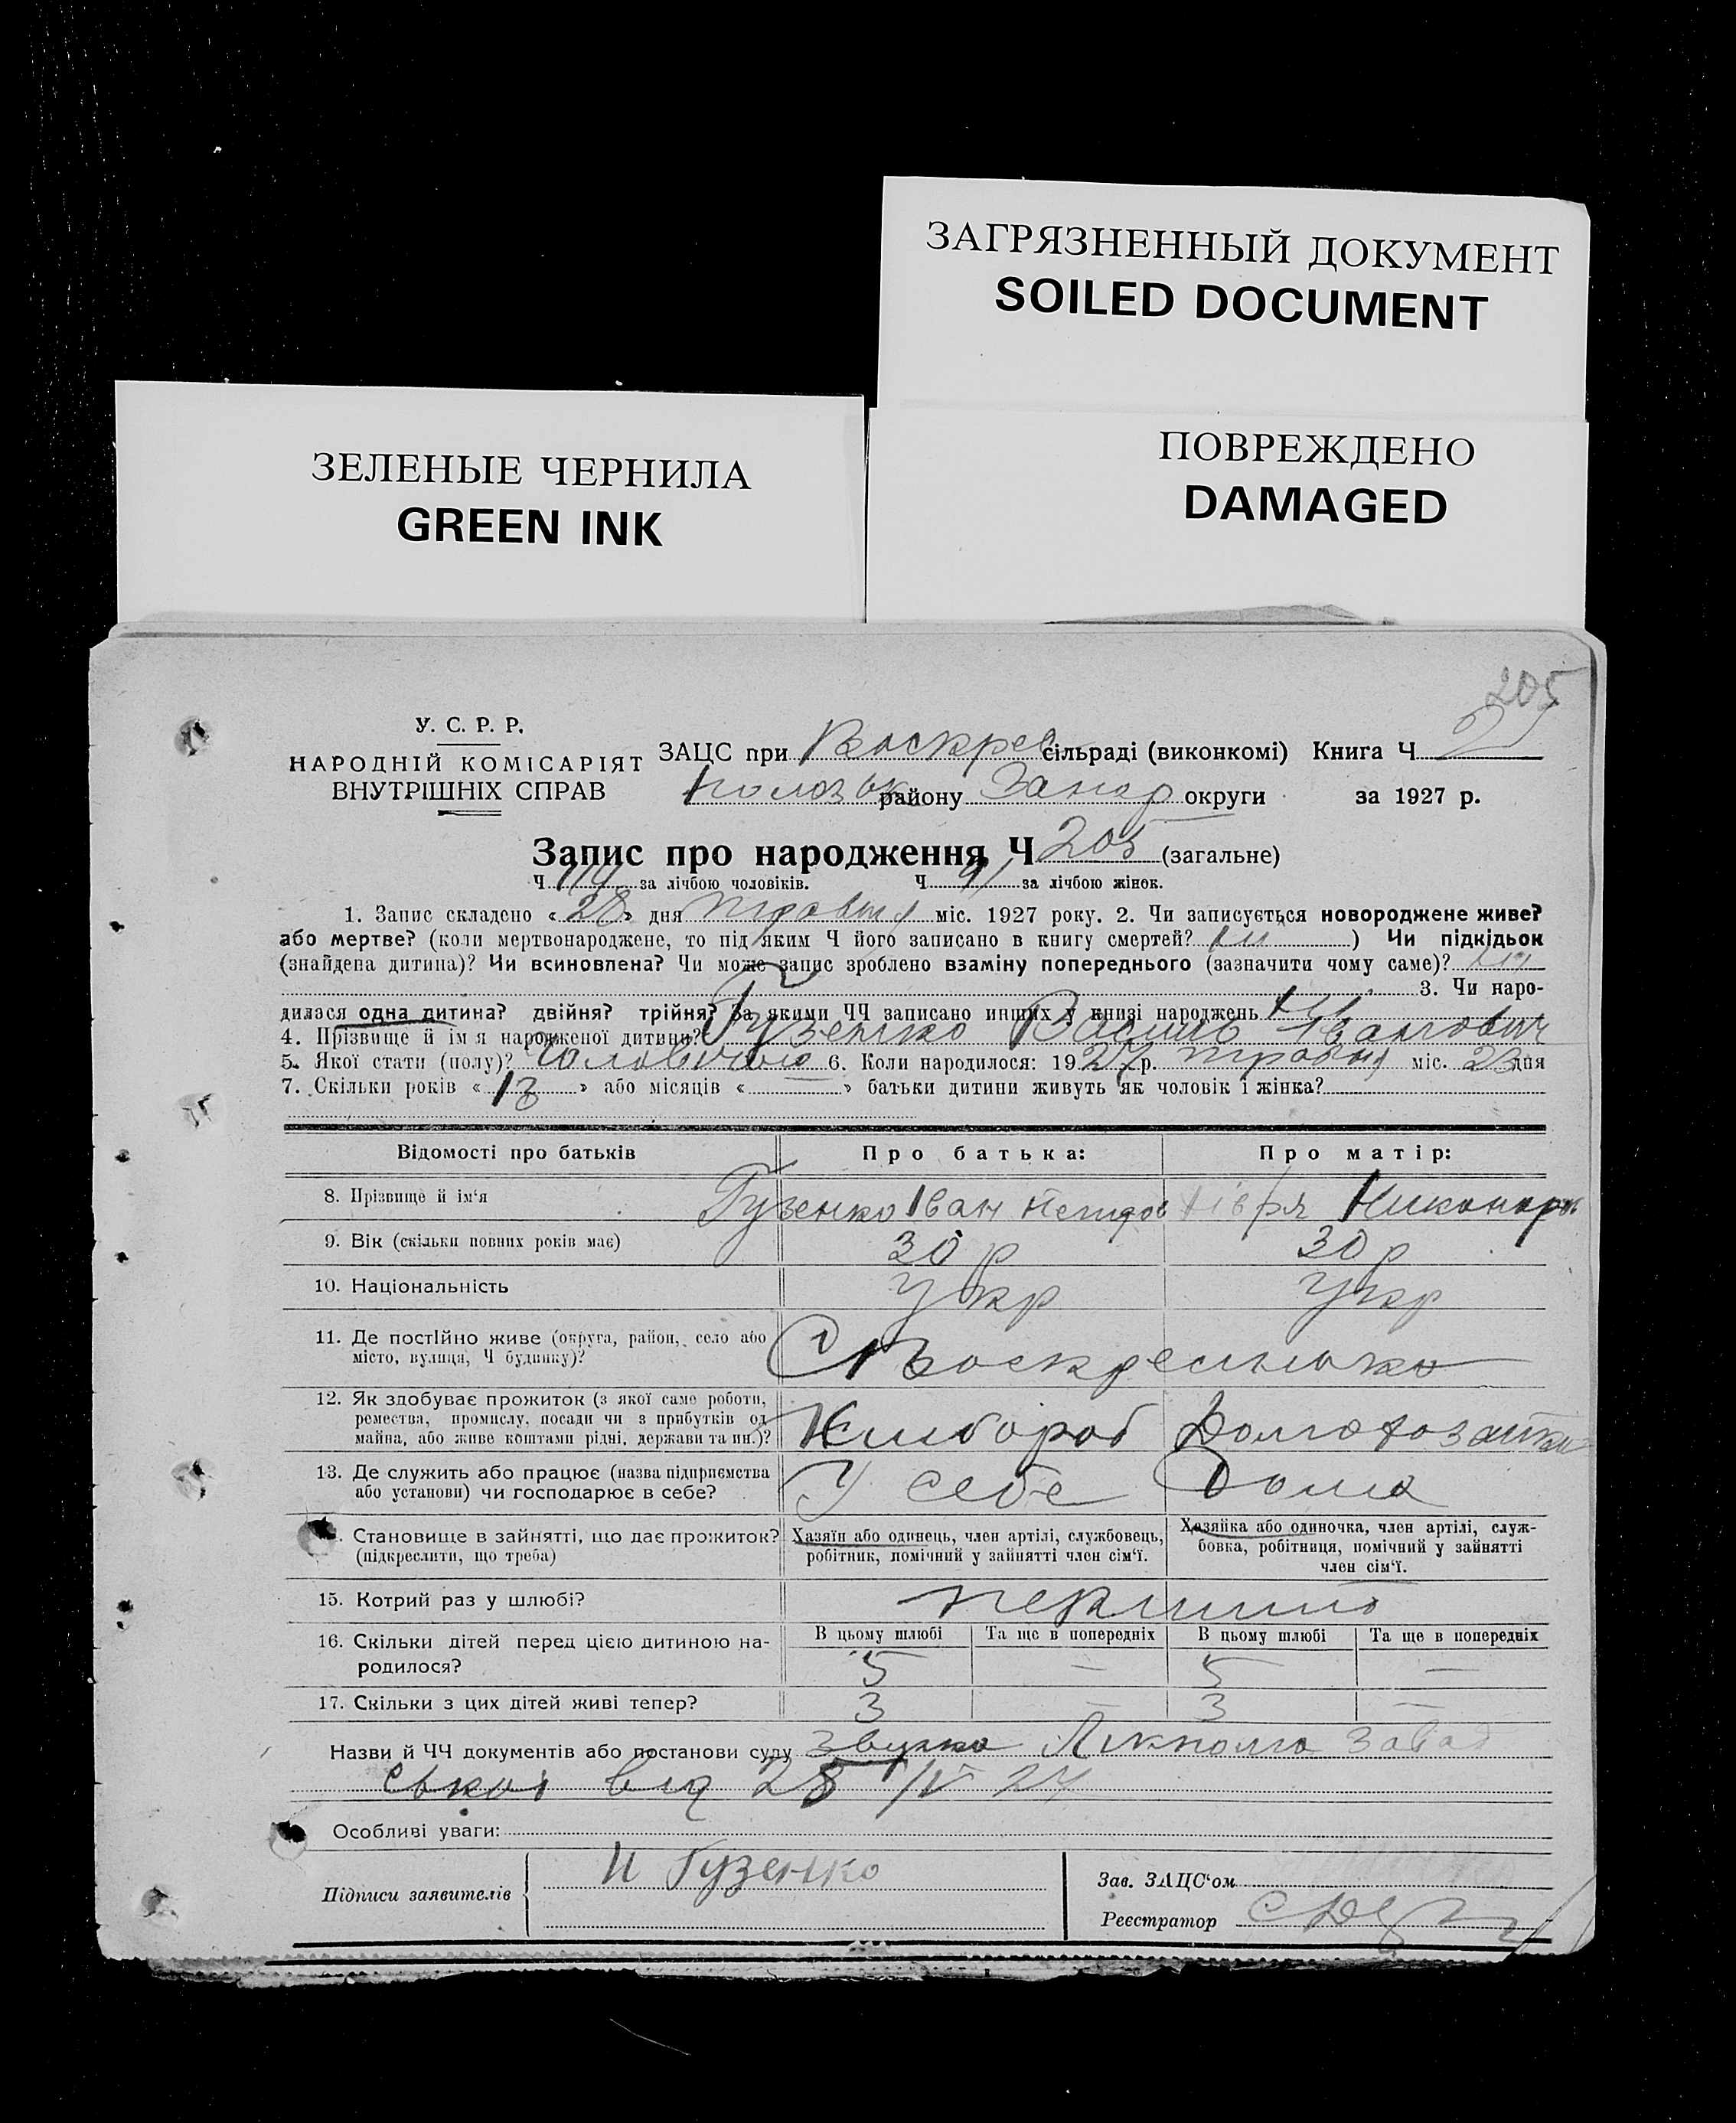 ЗАГРЯЗНЕННЫЙ ДОКУМЕНТ
SOILED DOCUMENT
ЗЕЛЕНЫЕ ЧЕРНИЛА
GREEN INK
ПОВРЕЖДЕНО
DAMAGED
205
У. С. Р. Р.
НАРОДНІЙ КОМІСАРІЯТ
ВНУТРІШНІХ СПРАВ
ЗАЦС при Воскрес сільраді (виконкомі) Книга Ч
району Запор округи за 1927 р.
Запис про народження Ч 205 (загальне)
Ч 114 за лічбою чоловіків. Ч 91 за лічбою жінок.
1. Запис складено «28» дня травня міс. 1927 року. 2. Чи записується новороджене живе?
або мертве? (коли мертвонароджене, то під яким Ч його записано в книгу смертей? ) Чи підкідьок
(знайдена дитина)? Чи всиновлена? Чи може запис зроблено взаміну попереднього (зазначити чому саме)?
3. Чи наро-
дилася одна дитина? двійня? трійня? За якими ЧЧ записано инших у книзі народжень
4. Прізвище й ім'я народженої дитини? Гузенко Василь Іванович
5. Якої стати (полу)? чоловічого 6. Коли народилося: 1927 р. травня міс. 23 дня
7. Скільки років «13» або місяців « » батьки дитини живуть як чоловік і жінка?
Відомості про батьків Про батька: Про матір:
8. Прізвище й ім'я Гузенко Іван Никанор
9. Вік (скільки повних років має) 30 р 30 р
10. Національність Укр Укр
11. Де постійно живе (округа, район, село або
місто, вулиця, Ч будинку)? Воскресенка
12. Як здобуває прожиток (з якої саме роботи,
ремества, промислу, посади чи з прибутків од
майна, або живе коштами рідні, держави та ин.)? Хлибороб
13. Де служить або працює (назва підприємства
або установи) чи господарює в себе? У себе Дома
Становище в зайнятті, що дає прожиток?
(підкреслити, що треба)
Хазяїн або одинець, член артілі, службовець,
робітник, помічний у зайнятті член сім'ї.
Хазяйка або одиночка, член артілі, служ-
бовка, робітниця, помічний у зайнятті
член сім'ї.
15. Котрий раз у шлюбі?
16. Скільки дітей перед цією дитиною на-
родилося?
В цьому шлюбі Та ще в попередніх В цьому шлюбі Та ще в попередніх
5 — 5 —
17. Скільки з цих дітей живі тепер? 3 — 3 —
Назви й ЧЧ документів або постанови суду
від 28/V 27
Особливі уваги:
Підписи заявителів И Гузенко
Зав. ЗАЦС'ом
Реєстратор